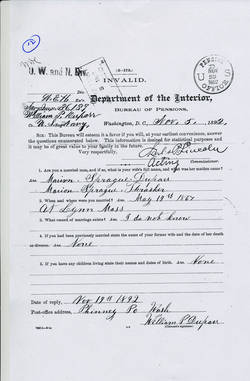 U. W. and N. Div.
(3—173.)
INVALID.
Department of the Interior,
BUREAU OF PENSIONS,
Washington, D. C., Nov. 5, 1892.
William P. Dupar
U. S. Navy
SIR: This Bureau will esteem it a favor if you will, at your earliest convenience, answer
the questions enumerated below. This information is desired for statistical purposes and
it may be of great value to your family in the future.
Very respectfully,
Acting
Commissioner.
1. Are you a married man, and, if so, what is your wife's full name, and what was her maiden name?
Marion Sprague Dupar
Marion Sprague Thrasher
2. When and where were you married? Ans. May 19th
At Lynn Mass
3. What record of marriage exists? Ans. I do not know
4. If you had been previously married state the name of your former wife and the date of her death
or divorce. Ans. None
5. If you have any children living state their names and dates of birth. Ans. None
Date of reply, Nov 19th 1892
Post-office address, Phinney Po Wash
William P Dupar